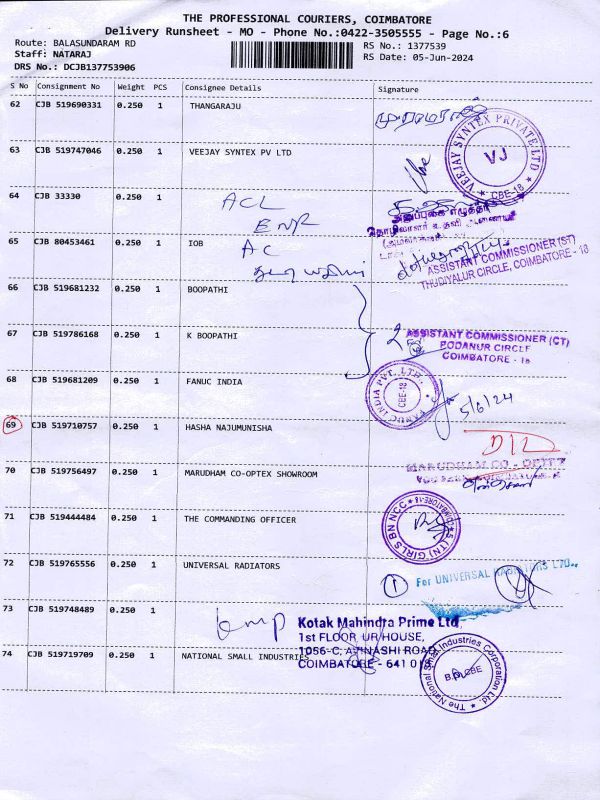 THE PROFESSIONAL COURIERS, COIMBATORE
Delivery Runsheet - MO - Phone No.:0422-3505555 - Page No.:6
Route: BALASUNDARAM RD RS No.: 1377539
Staff: NATARAJ RS Date: 05-Jun-2024
DRS No.: DCJB137753906
S No Consignment No Weight PCS Consignee Details Signature
62 CJB 519690331 0.250 1 THANGARAJU
63 CJB 519747046 0.250 1 VEEJAY SYNTEX PV LTD
VEEJAY SYNTEX PRIVATE LTD
VJ
CBE-18
64 CJB 33330 0.250 1 ACL
ENR
65 CJB 80453461 0.250 1 IOB AC
ASSISTANT COMMISSIONER (ST)
THUDIYALUR CIRCLE, COIMBATORE - 18
66 CJB 519681232 0.250 1 BOOPATHI
67 CJB 519786168 0.250 1 K BOOPATHI 2
ASSISTANT COMMISSIONER (CT)
PODANUR CIRCLE
COIMBATORE - 18
68 CJB 519681209 0.250 1 FANUC INDIA
FANUC INDIA PVT. LTD.
CBE-18
5/6/24
69 CJB 519710757 0.250 1 HASHA NAJUMUNISHA
70 CJB 519756497 0.250 1 MARUDHAM CO-OPTEX SHOWROOM
MARUDHAM CO - OPTEX
71 CJB 519444484 0.250 1 THE COMMANDING OFFICER
(TN) GIRLS BN NCC
COIMBATORE-18
72 CJB 519765556 0.250 1 UNIVERSAL RADIATORS 1 For UNIVERSAL RADIATORS LTD..
73 CJB 519748489 0.250 1 kmp
Kotak Mahindra Prime Ltd
1st FLOOR, UR HOUSE,
1056-C, AVINASHI ROAD,
COIMBATORE - 641 018
74 CJB 519719709 0.250 1 NATIONAL SMALL INDUSTRIES
The National Small Industries Corporation Ltd.
B.O. CBE